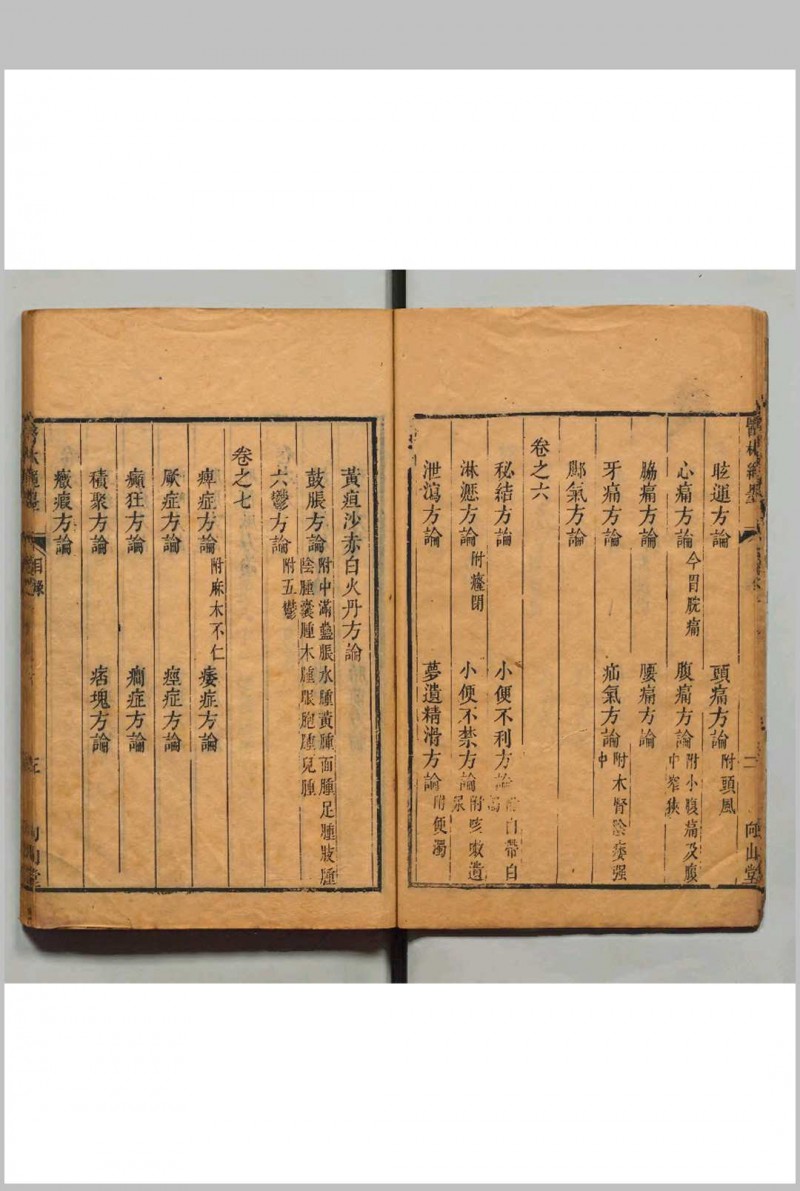 眩運方論 頭痛方論 附頭風
心痛方論 今胃脘痛 腹痛方論 附小腹痛及腹中窄狹
脇痛方論 腰痛方論
牙痛方論 疝氣方論 附木腎陰痿强中
脚氣方論
卷之六
秘結方論 小便不利方論 附白帶白濁
淋瀝方論 附癃閉 小便不禁方論 附咳嗽遺尿
泄瀉方論 夢遺精滑方論 附便濁
向山堂
黃疸沙赤白火丹方論
鼓脹方論 附中滿蠱脹水腫黃腫面腫足腫肢腫陰腫囊腫木腫脹胞腫兒腫
六鬱方論 附五鬱
卷之七
痺症方論 附麻木不仁 痿症方論
厥症方論 痙症方論
癲狂方論 癎症方論
積聚方論 痞塊方論
癥瘕方論
目錄